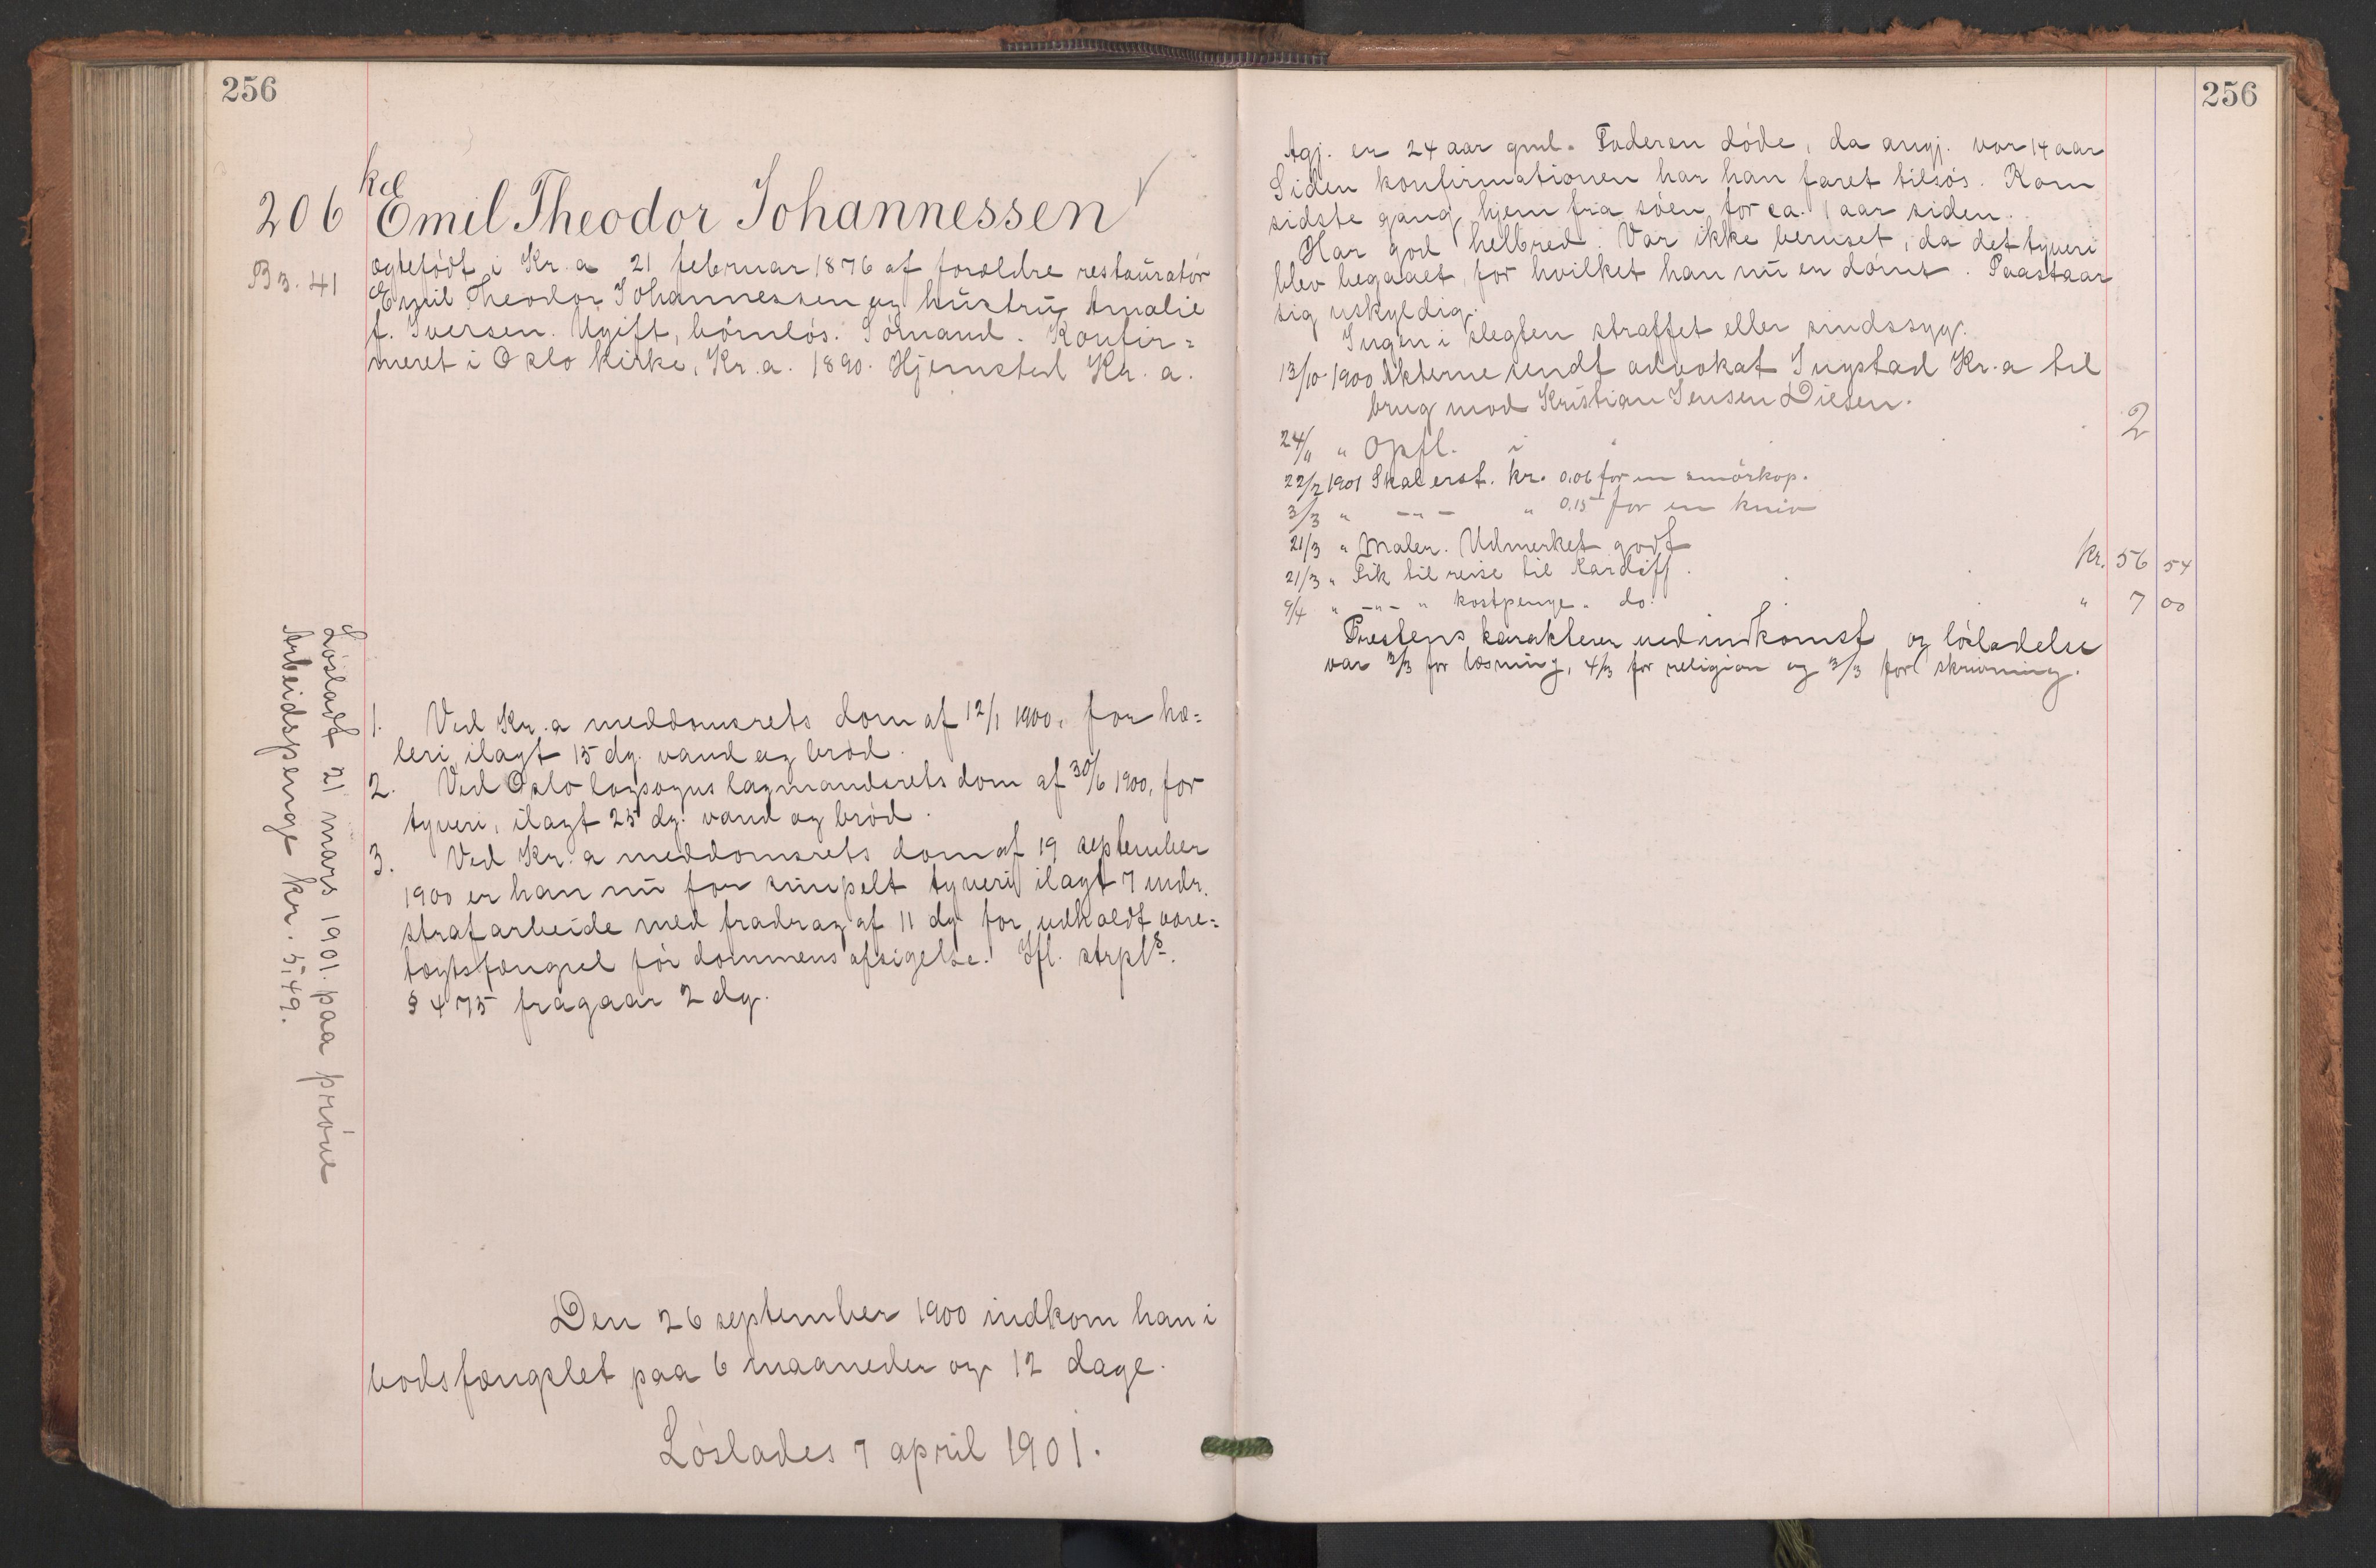 256
206
Emil Theodor Johannessen
B3. 41
ægtefødt i Kr.a 21 februar 1876 af forældre restauratør
Emil Theodor Johannessen og hustru Amalie
f. Iversen. Ugift, børnløs. Sømand. Konfir=
meret i Oslo kirke, Kr.a. 1890. Hjemsted Kr.a.
Løsladt 21 mars 1901. paa prøve
Arbeidspenge kr. 5,49.
1. Ved Kr.a meddomsrets dom af 12/1 1900, for hæ=
leri, ilagt 15 dg. vand og brød.
2. Ved Oslo lagsogns lagmandsrets dom af 30/6 1900, for
tyveri, ilagt 25 dg. vand og brød.
3. Ved Kr.a meddomsrets dom af 19 september
1900 er han nu for simpelt tyveri ilagt 7 mdr.
strafarbeide med fradrag af 11 dg for udholdt vare=
tægtsfængsel før dommens afsigelse. Ifl. strpls.
§ 475 fragaar 2 dg.
Den 26 september 1900 indkom han i
bodsfængslet paa 6 maaneder og 12 dage.
Løslades 7 april 1901.
256
Agj. er 24 aar gml. Faderen døde, da angj. var 14 aar
Siden konfirmationen har han faret tilsøs. Kom
sidste gang hjem fra søen for ca. 1 aar siden.
Har god helbred. Var ikke beruset, da det tyveri
blev begaaet, for hvilket han nu er dømt. Paastaar
sig uskyldig.
Ingen i slegten straffet eller sindssyg.
13/10 1900 Akterne sendt advokat Ingstad Kr.a til
brug mod Kristian Jensen Diesen.
24/11 " Opfl. i 2
22/2 1901 Skal erst. kr. 0,06 for en smørkop.
3/3 " -"- " 0,15 for en kniv
21/3 " Maler. Udmerket godt
21/3 " Fik til reise til Kardiff. kr. 56 54
9/4 " -"- " kostpenge " do. " 7 00
Prestens karakterer ved indkomst og løsladelse
var 3/3 for læsning, 4/3 for religion og 3/3 for skrivning.